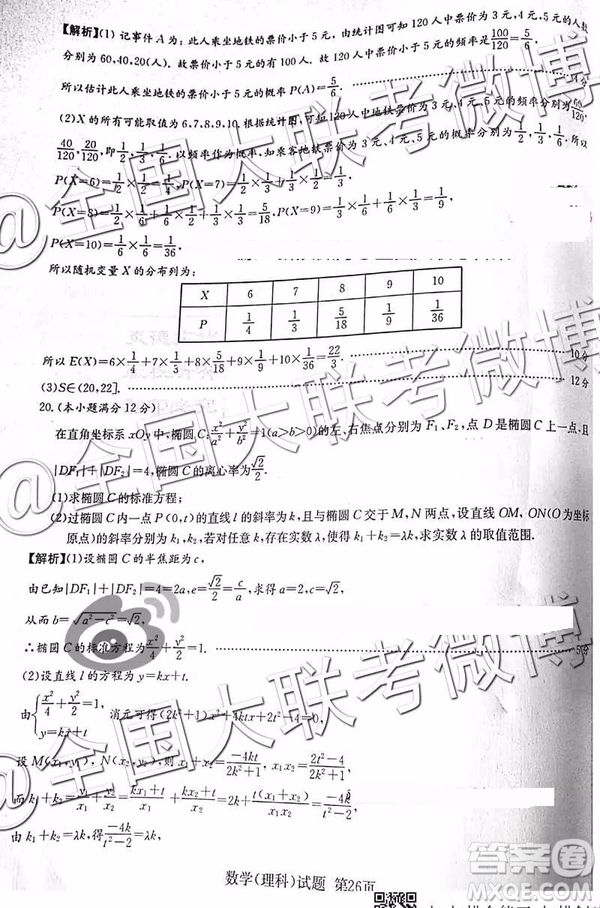 【解析】(1)记事件A为:此人乘坐地铁的票价小于5元,由统计图可知120人中票价为3元,4元,5元的人数
分别为60,40,20(人).故票价小于5元的有100人.故120人中票价小于5元的频率是100/120=5/6.
所以估计此人乘坐地铁的票价小于5元的概率P(A)=5/6.
(2)X的所有可能取值为6,7,8,9,10.根据统计图,可知120人中地铁票价为3元,4元,5元的频率分别为60/120,
40/120,20/120,即1/2,1/3,1/6.以频率作为概率,知乘客地铁票价为3元,4元,5元的概率分别为1/2,1/3,1/6.
P(X=6)=1/2×1/2=1/4,P(X=7)=1/2×1/3+1/3×1/2=1/3,
P(X=8)=1/2×1/6+1/6×1/2+1/3×1/3=5/18,P(X=9)=1/3×1/6+1/6×1/3=1/9,
P(X=10)=1/6×1/6=1/36,
所以随机变量X的分布列为:
X 6 7 8 9 10
P 1/4 1/3 5/18 1/9 1/36
所以E(X)=6×1/4+7×1/3+8×5/18+9×1/9+10×1/36=22/3. 10分
(3)S∈(20,22]. 12分
20.(本小题满分12分)
在直角坐标系xOy中,椭圆C:x²/a²+y²/b²=1(a>b>0)的左、右焦点分别为F₁、F₂,点D是椭圆C上一点,且
|DF₁|+|DF₂|=4,椭圆C的离心率为√2/2.
(1)求椭圆C的标准方程;
(2)过椭圆C内一点P(0,t)的直线l的斜率为k,且与椭圆C交于M、N两点,设直线OM,ON(O为坐标
原点)的斜率分别为k₁,k₂,若对任意k,存在实数λ,使得k₁+k₂=λk,求实数λ的取值范围.
【解析】(1)设椭圆C的半焦距为c,
由已知|DF₁|+|DF₂|=4=2a,e=√2/2=c/a,求得a=2,c=√2,
从而b=√(a²-c²)=√2,
∴椭圆C的标准方程为x²/4+y²/2=1. 5分
(2)设直线l的方程为y=kx+t.
由{x²/4+y²/2=1, y=kx+t 消元可得(2k²+1)x²+4ktx+2t²-4=0,
设M(x₁,y₁),N(x₂,y₂),则x₁+x₂=-4kt/(2k²+1),x₁x₂=(2t²-4)/(2k²+1),
而k₁+k₂=y₁/x₁+y₂/x₂=(kx₁+t)/x₁+(kx₂+t)/x₂=2k+t(x₁+x₂)/(x₁x₂)=-4k/(t²-2),
由k₁+k₂=λk,得-4k/(t²-2)=λk,
数学(理科)试题 第26页
@全国大联考微博
@全国大联考微博
@全国大联考微博
答案圈